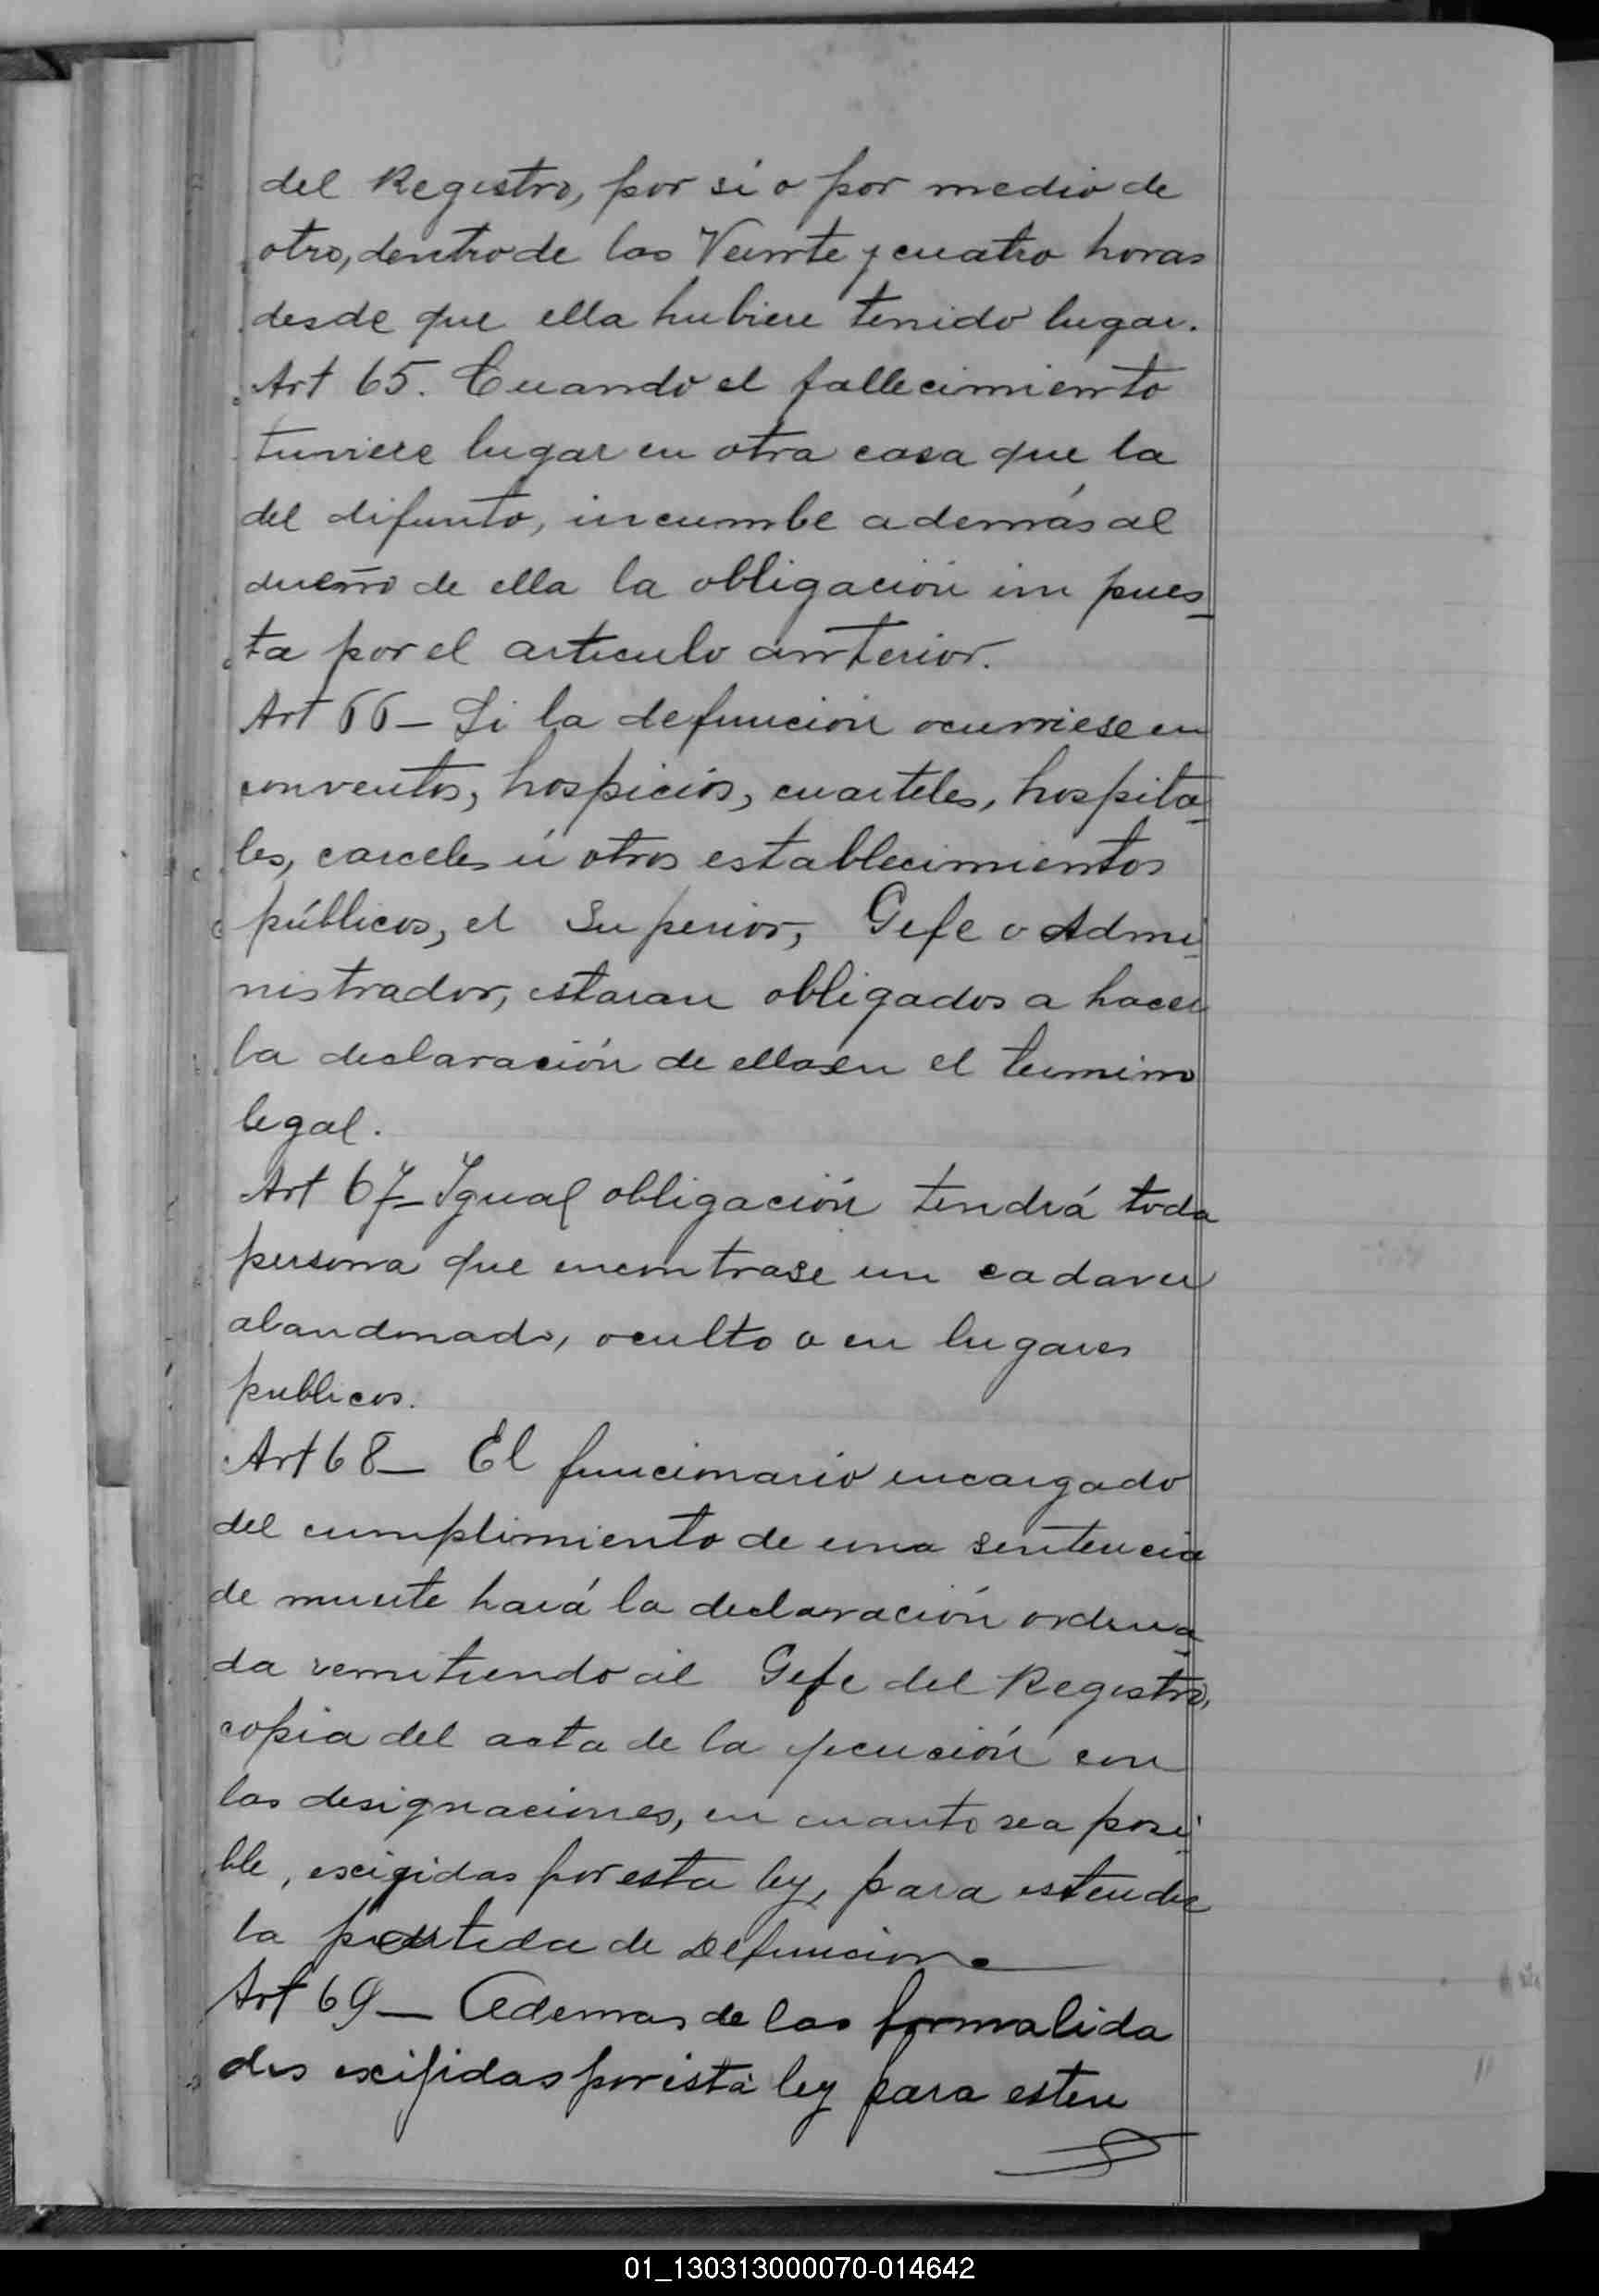 del Registro, por sí o por medio de
otro, dentro de las Veinte y cuatro horas
desde que ella hubiere tenido lugar.
Art 65. Cuando el fallecimiento
tuviere lugar en otra casa que la
del difunto, incumbe además al
dueño de ella la obligación im pues-
ta por el articulo anterior.
Art 66 - Si la defuncion ocurriese en
conventos, hospicios, cuarteles, hospita-
les, carceles ú otros establecimientos
públicos, el Superior, Gefe o Admi-
nistrador, estaran obligados a hacer
la declaración de ellas en el termino
legal.
Art 67 - Igual obligación tendrá toda
persona que encontrase un cadaver
abandonado, oculto o en lugares
publicos.
Art 68 - El funcionario encargado
del cumplimiento de una sentencia
de muerte hará la declaración ordena-
da remitiendo al Gefe del Registro,
copia del acta de la ejecución con
las designaciones, en cuanto sea posi-
ble, escigidas por esta ley, para estender
la partida de Defuncion.
Art 69 - Ademas de las formalida
des exijidas por esta ley para esten
01_130313000070-014642